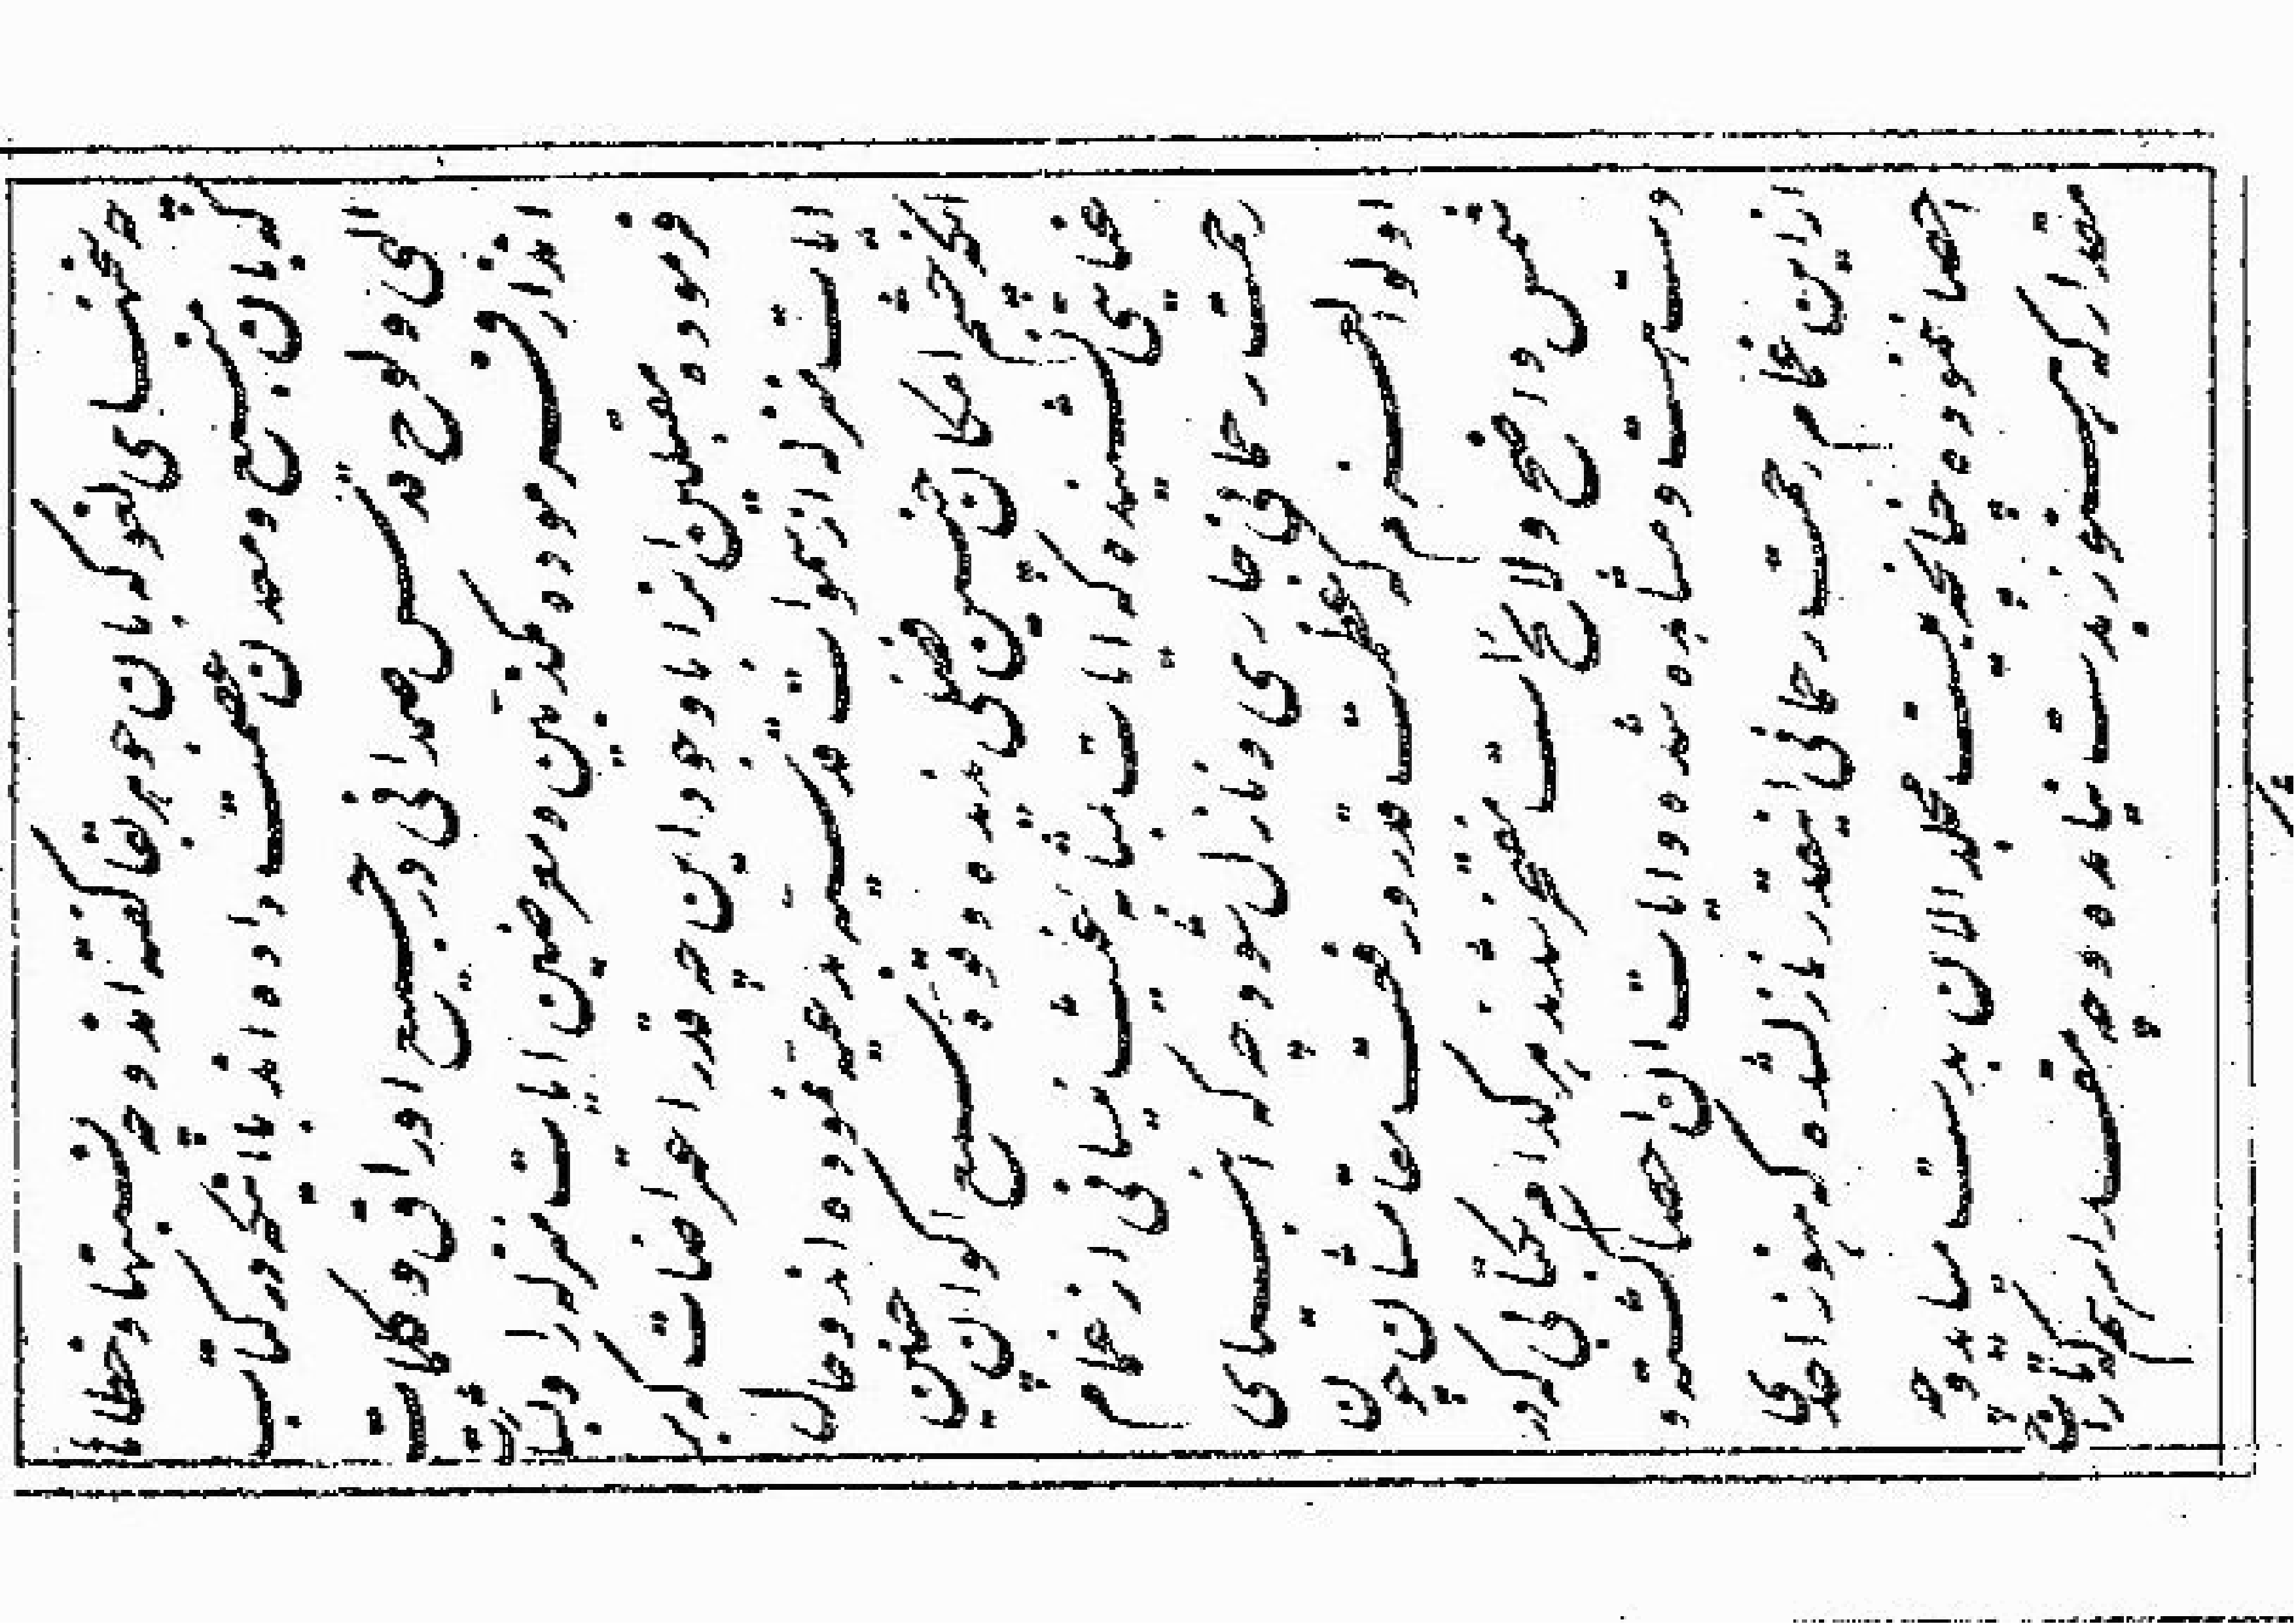 چه سخنهای لغو که بآن جوهر بقا گفته‌اند و چه نسبتها و خطاها
که بآن منبع و معدن عصمت داده‌اند با اینکه در کتاب
الهی و لوح قدس صمدانی در جمیع اوراق و کلمات
انذار فرموده مکذبین و معرضین آیات منزله را و بشارت
فرموده مقبلین آنرا با وجود این چه قدر اعتراضات که بر
آیات منزله از سموات قدسیه بدیعه نموده‌اند و حال
آنکه چشم امکان چنین فضلی ندیده و قوه سمع اکوان چنین
عنایتی نشنیده که آیات بمثابه غیث نیسانی از غمام
رحمت رحمانی جاری و نازل شود چه که انبیای
اولوالعزم که عظمت قدر و رفعت مقامشان چون
شمس واضح و لایح است مفتخر شدند هر کدام بکتابی که در
دست هست و مشاهده شده و آیات آن احصا گشته و
ازین غمام رحمت رحمانی اینقدر نازل شده که هنوز احدی
احصا ننموده چنانچه بیست مجلد الان بدست میاید و چه
مقدار که هنوز بدست نیامده و چه مقدار هم که تاراج